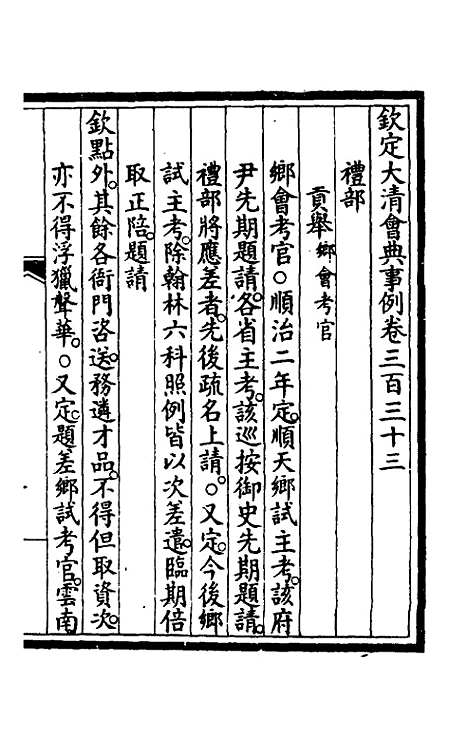 欽定大清會典事例卷三百三十三
禮部
貢舉鄉會考官
鄉會考官○順治二年定。順天鄉試主考。該府
尹先期題請。各省主考。該巡按御史先期題請。
禮部將應差者。先後疏名上請。○又定。今後鄉
試主考。除翰林六科照例皆以次差遣。臨期倍
取正陪。題請
欽點外。其餘各衙門咨送。務遴才品。不得但取資次。
亦不得浮獵聲華。○又定。題差鄉試考官。雲南